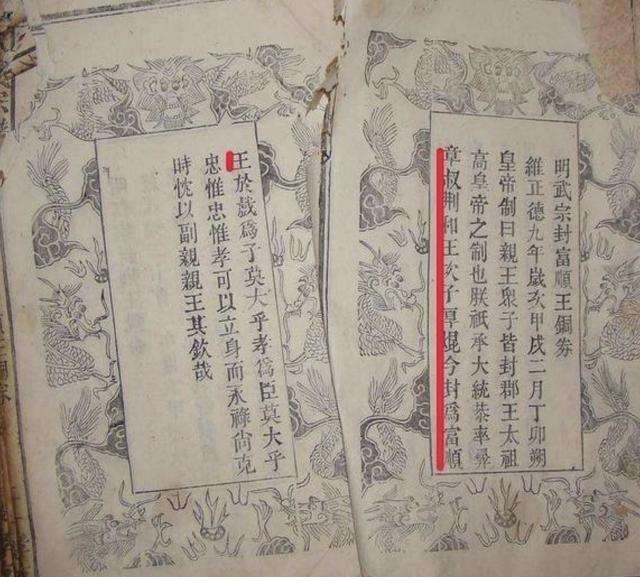 明武宗封富順王銅券
維正德九年歲亥甲戌二月丁卯朔
皇帝制曰親王衆子皆封郡王太祖
高皇帝之制也朕祇承大統恭率彝
章叔荆和王次子厚焜今封爲富順
王於戲爲子莫大乎孝爲臣莫大乎
忠惟忠惟孝可以立身而永祿尙克
時忱以副親親王其欽哉